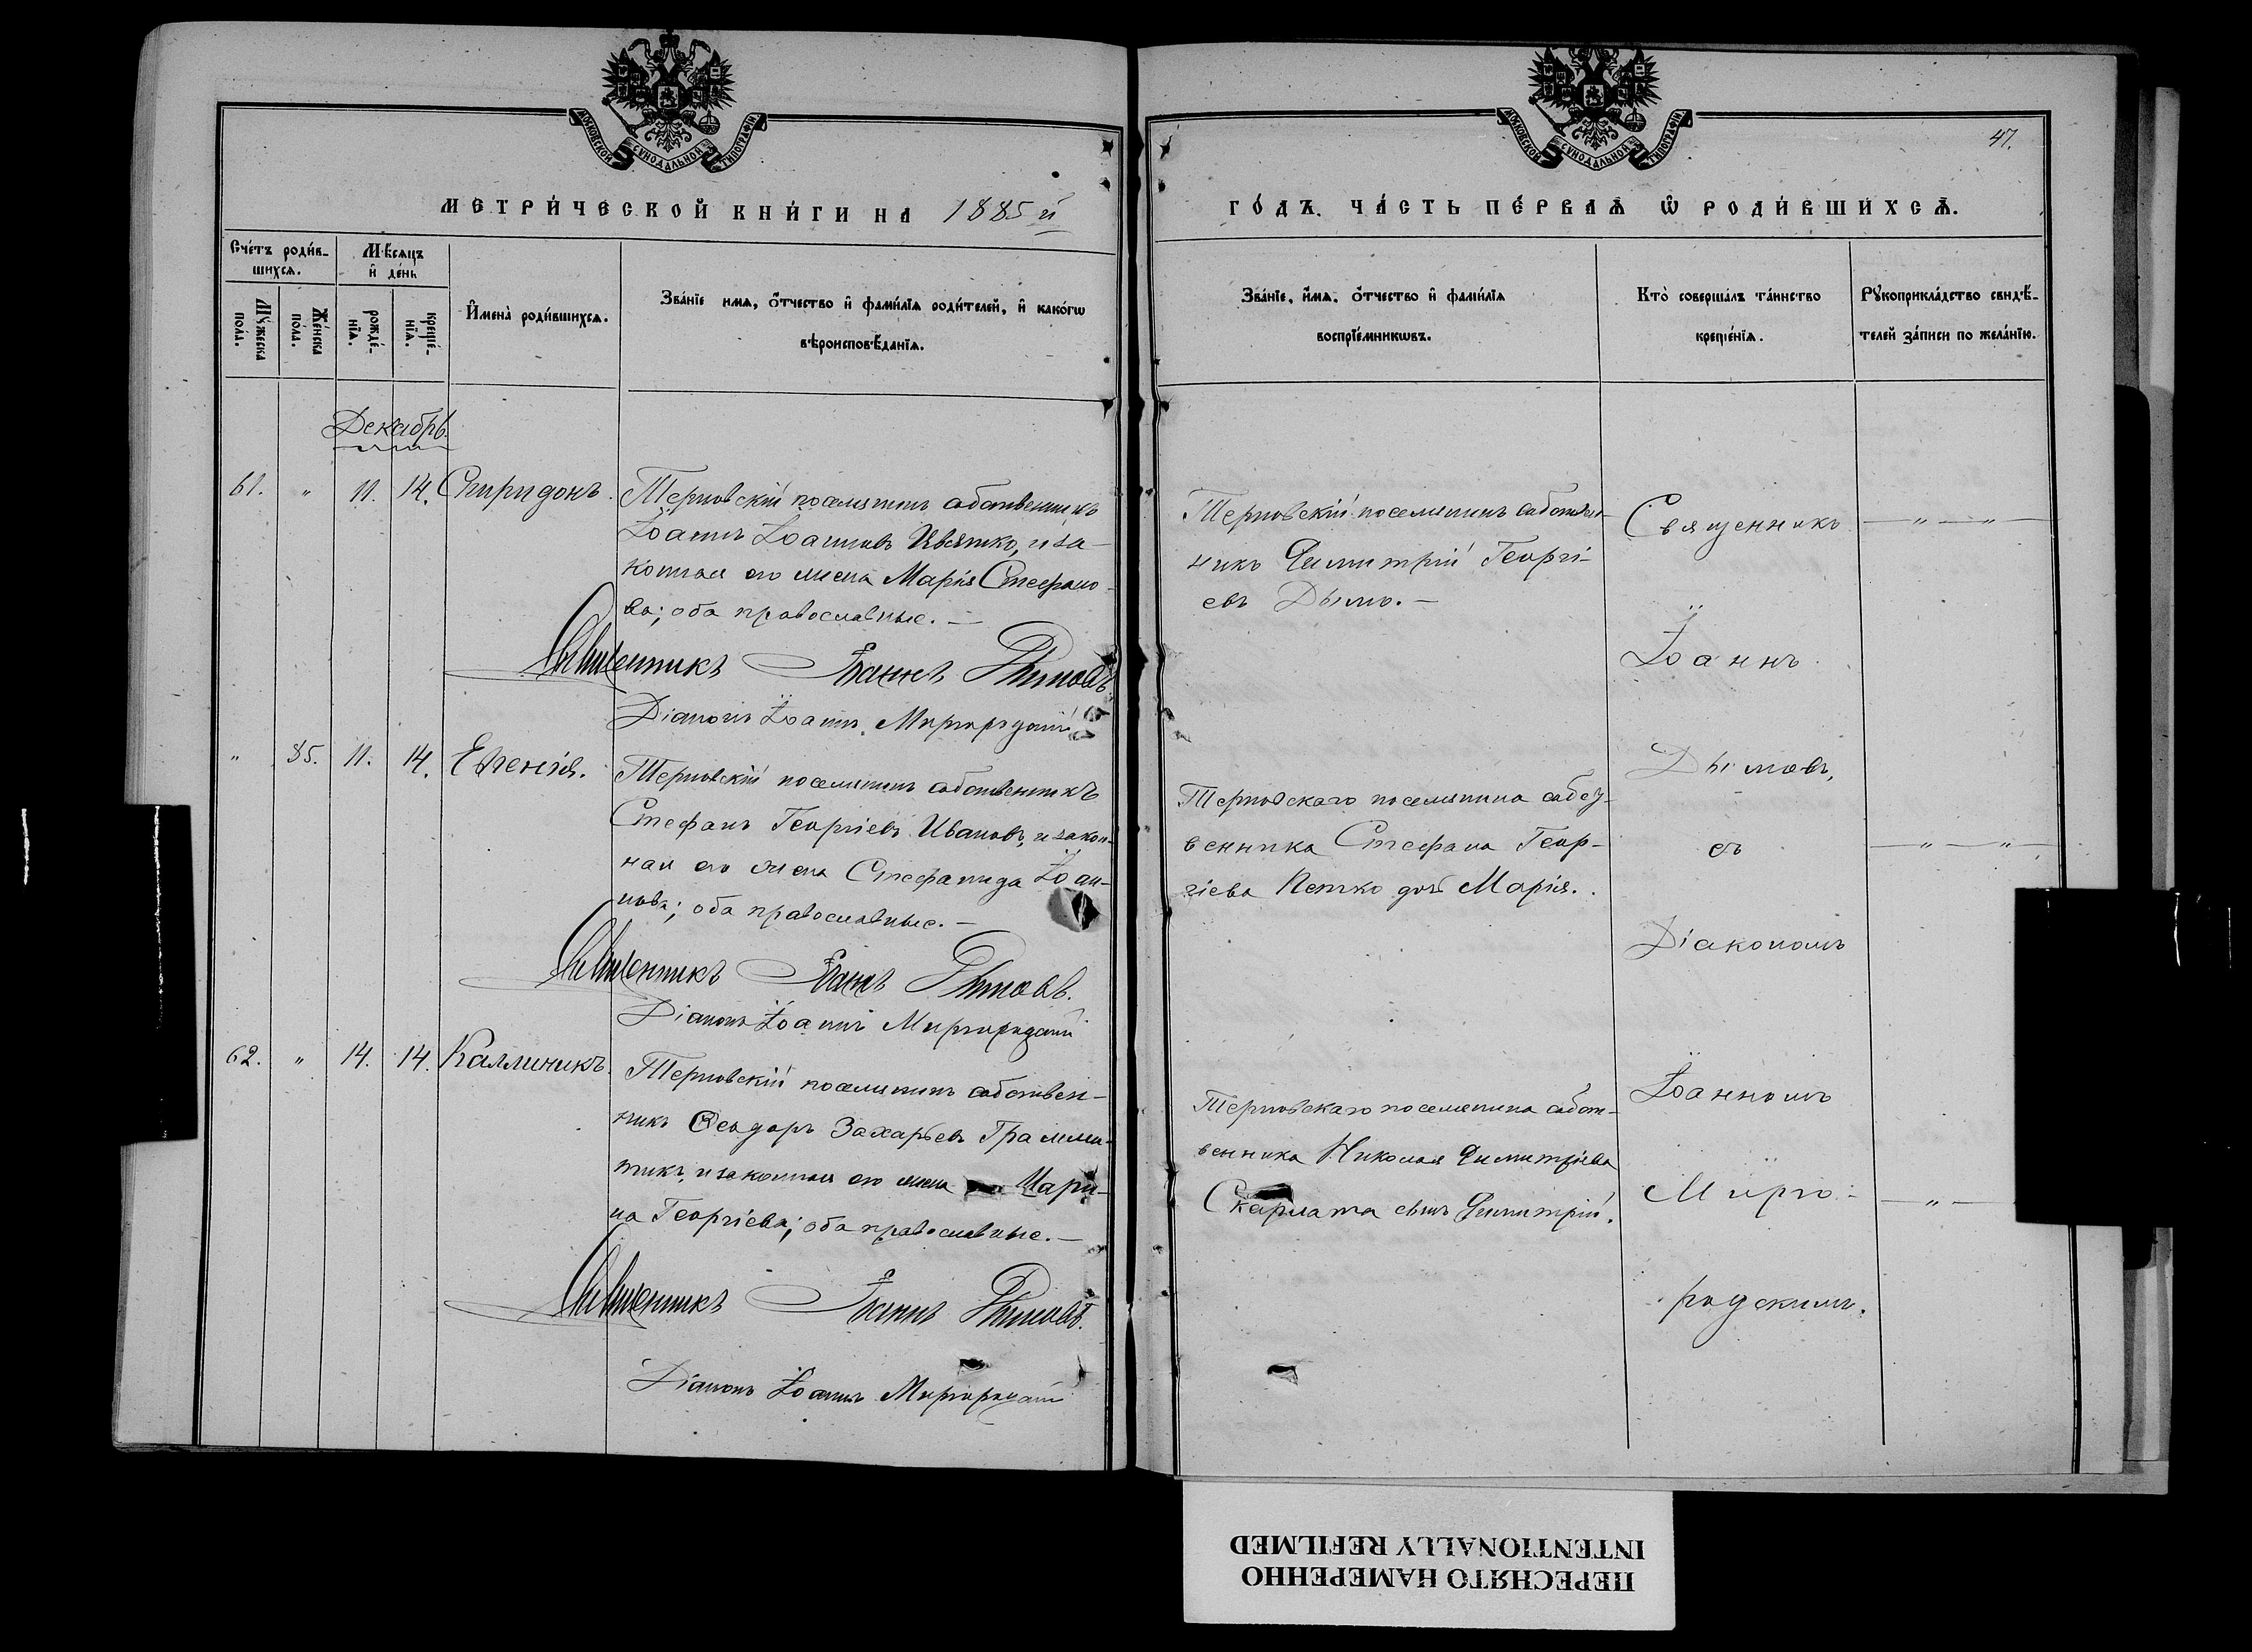 МОСКОВСКОЙ СУНОДАЛЬНОЙ ТИПОГРАФІИ
МЕТРИ́ЧЕСКОЙ КНИ́ГИ НА 1885й
Сче́тъ роди́в-
шихсѧ.
Мѣсѧцъ
и҆ де́нь
Му́жеска
по́ла.
Же́нска
по́ла.
рожде́-
нїѧ.
креще́-
нїѧ.
И҆мена̀ роди́вшихсѧ.
Зва́нїе имѧ, ѻ҆́тчество и҆ фами́лїѧ роди́телей, и҆ како́гѡ
вѣроисповѣ́данїѧ.
Декабрь
61. " 11. 14. Спиридонъ.
Терновскій поселянинъ собственникъ
Іоаннъ Іоанновъ Ивянко, и за-
конная его жена Марія Стефано-
ва; оба православные. —
Священникъ Іоаннъ Дымовъ.
Діаконъ Іоаннъ Миргородскій
" 85. 11. 14. Евгенія.
Терновскій поселянинъ собственникъ
Стефанъ Георгіевъ Ивановъ, и закон-
ная его жена Стефанида Іоан-
нова; оба православные. —
Священникъ Іоаннъ Дымовъ.
Діаконъ Іоаннъ Миргородскій
62. " 14. 14. Каллиникъ.
Терновскій поселянинъ собствен-
никъ Ѳеодоръ Захарьевъ Грамма-
тикъ, и законная его жена Мари-
на Георгіева; оба православные. —
Священникъ Іоаннъ Дымовъ.
Діаконъ Іоаннъ Миргородскій
МОСКОВСКОЙ СУНОДАЛЬНОЙ ТИПОГРАФІИ
47.
ГО́ДЪ. ЧА́СТЬ ПЕ́РВАѦ Ѡ҆ РОДИ́ВШИХСѦ.
Зва́нїе, и҆́мѧ, ѻ҆́тчество и҆ фами́лїѧ
воспрїе́мникѡвъ.
Кто̀ соверша́лъ та́инство
креще́нїѧ.
Рꙋкоприкла́дство свидѣ́-
телей за́писи по жела́нїю.
Терновскій поселянинъ собствен-
никъ Димитрій Георгі-
евъ Дымо. —
Терновскаго поселянина собст-
венника Стефана Геор-
гіева Петко дочь Марія.
Терновскаго поселянина собст-
венника Николая Димитріева
Скарлата сынъ Димитрій.
Священникъ
Іоаннъ
Дымовъ,
съ
Діакономъ
Іоанномъ
Мирго-
родскимъ.
— " — " —
— " — " —
— " —
ПЕРЕСНЯТО НАМЕРЕННО
INTENTIONALLY REFILMED